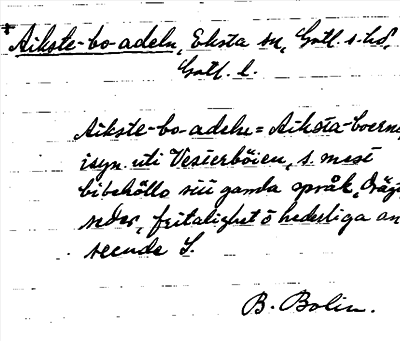 Aikste-bo-adeln, Eksta sn, Gotl. s. hd,
Gotl. l.
Aikste-bo-adeln = Aiksta-boerna
isyn. uti Vesterböien, s. mest
bibehållo sin gamla språk, dräg
seder, feitalighet o hederliga an
seende S.
B. Bolin.